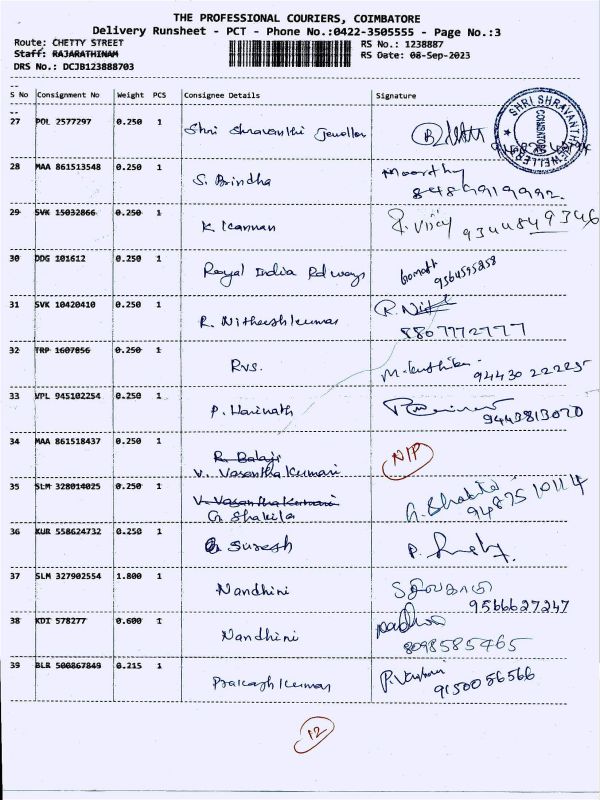 THE PROFESSIONAL COURIERS, COIMBATORE
Delivery Runsheet - PCT - Phone No.:0422-3505555 - Page No.:3
Route: CHETTY STREET RS No.: 1238887
Staff: RAJARATHINAM RS Date: 08-Sep-2023
DRS No.: DCJB123888703
S No Consignment No Weight PCS Consignee Details Signature
27 POL 2577297 0.250 1 Shri Shravanthi Jeweller
SHRI SHRAVANTHI JEWELLERS COIMBATORE
28 MAA 861513548 0.250 1 S. Brindha Moorthy 8489919992.
29 SVK 15032866 0.250 1 K Kannan R. Vijay 9344849346
30 DDG 101612 0.250 1 Royal India Rdways 9564595258
31 SVK 10420410 0.250 1 R. Nitheeshkumar R. Nit 8807772777
32 TRP 1607056 0.250 1 RVS. 94430 22225
33 VPL 945102254 0.250 1 P. Harinath 9443813070
34 MAA 861518437 0.250 1 R. Balaji N/P
V. Vasantha Kumari
35 SLM 328014025 0.250 1 V. Vasantha Kumari G. Shakila 94875 10114
G. Shakila
36 KUR 558624732 0.250 1 G Suresh
37 SLM 327902554 1.800 1 Nandhini 9566627247
38 KDI 578277 0.600 1 Nandhini Padma 8098585465
39 BLR 500867849 0.215 1 Prakash Kumar 9150056566
12